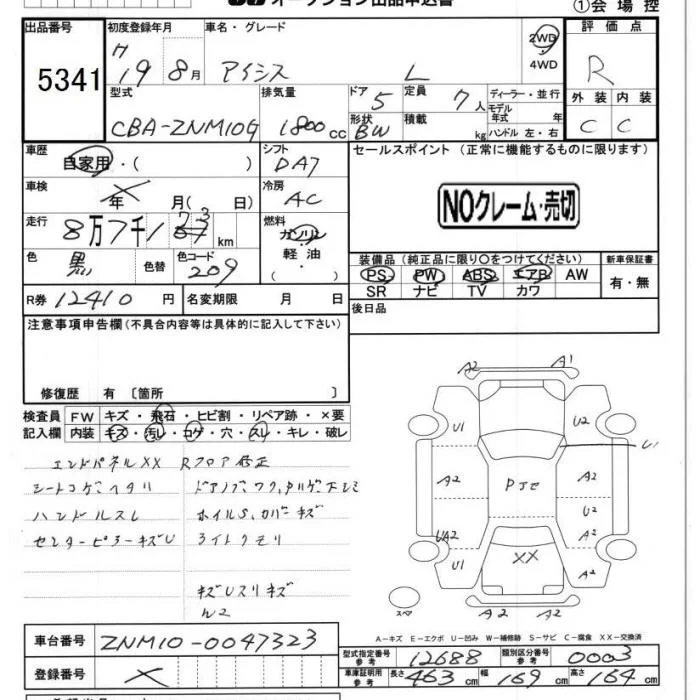 オークション出品申込書
①会場控
出品番号 5341
初度登録年月 19年 8月
車名・グレード アイシス L
2WD
4WD
評価点 R
外装 内装
C C
型式 CBA-ZNM10G
排気量 1800cc
ドア 5
形状 BW
定員 7人
積載 kg
ディーラー・並行
モデル年式 年
ハンドル 左・右
車歴 自家用・( )
シフト DA7
セールスポイント (正常に機能するものに限ります)
車検 年 月( 日)
冷房 AC
NOクレーム・売切
走行 8万7千1 73 km
燃料 ガソリン
軽油・
( )
色 黒 色替 色コード 209
装備品(純正品に限り○をつけてください)
新車保証書
PS PW ABS エアB AW
SR ナビ TV カワ
有・無
R券 12410 円 名変期限 月 日
後日品
注意事項申告欄(不具合内容等は具体的に記入して下さい)
修復歴 有 〔箇所 〕
検査員 FW キズ・飛石・ヒビ割・リペア跡・×要
記入欄 内装 キズ・汚レ・コゲ・穴・スレ・キレ・破レ
エンドパネルXX Rフロア修正
シートコゲ、ヘタリ
ハンドルスレ ホイルS,カバーキズ
センターピラーキズU ライトクモリ
キズUスリキズ
A2 A1
U1 U2
U1
A2 PTE A2
U2
UA2 A2
U1 XX A2
A2 A2
スペア
A-キズ E-エクボ U-凹み W-補修跡 S-サビ C-腐食 XX-交換済
車台番号 ZNM10-0047323
登録番号
型式指定番号 参考 12688 類別区分番号 参考 0003
車庫証明用 参考 長さ 463cm 幅 169cm 高さ 164cm